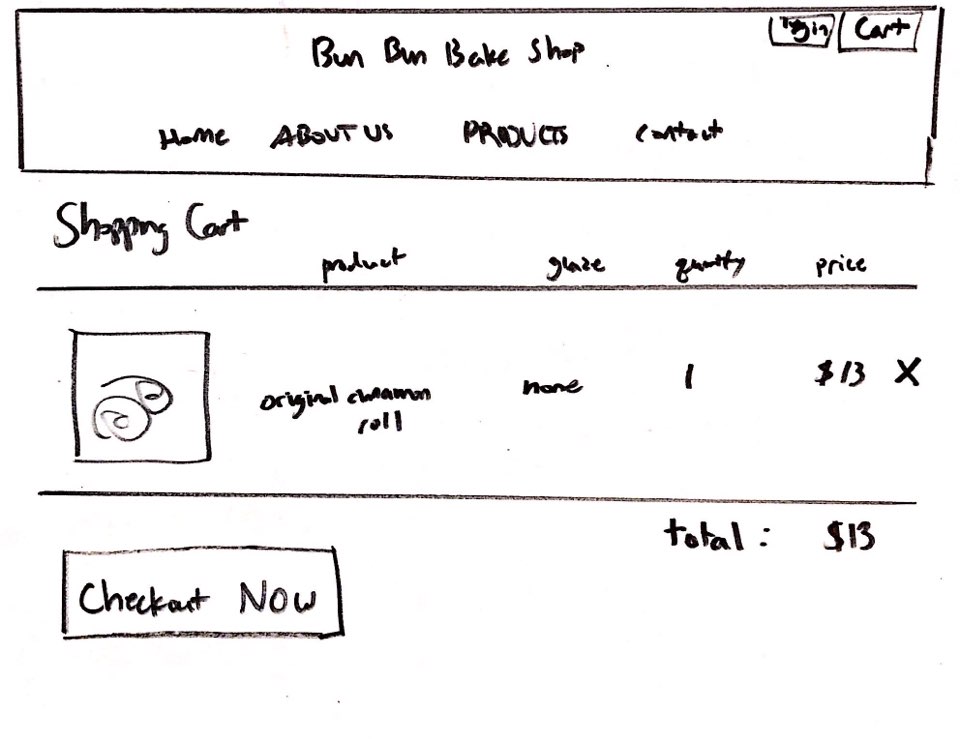 Login Cart
Bun Bun Bake Shop
Home ABOUT US PRODUCTS Contact
Shopping Cart
product glaze quantity price
original cinnamon none 1 $13 X
roll
total: $13
Checkout Now